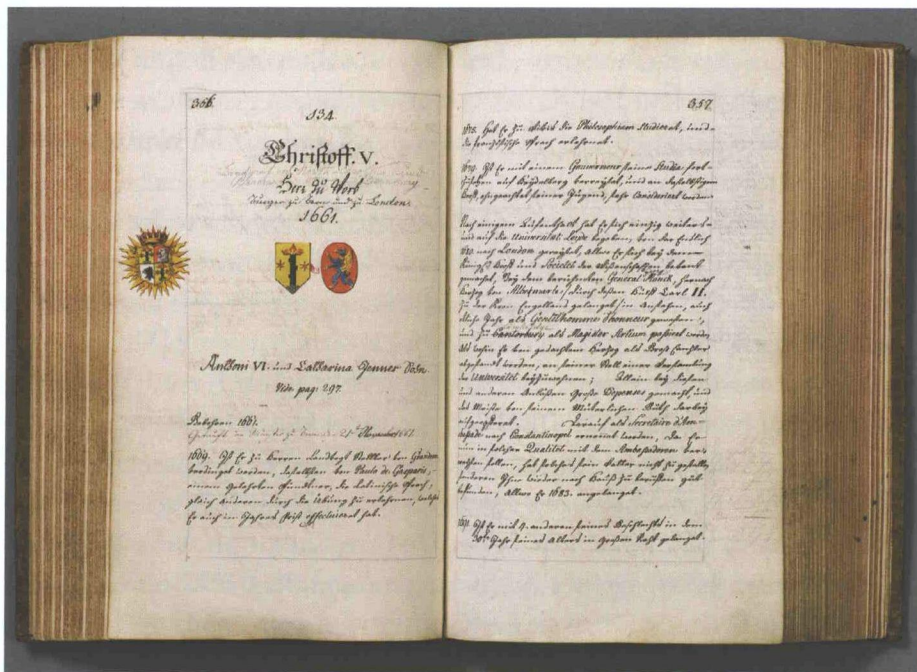 356.
134.
Christoff. V.
Herr zu Worb
Burger zu Bern und zu London
1661.
Anthoni VI. und Catharina Jenner Sohn.
Vide. pag: 297.
Gebohren 1661.
1669. Ist Er zu Herren Landvogt
verdinget worden, daselbsten von Paulo de Gasparis,
einem gelehrten die Latinische Sprach,
gleich anderen durch die Übung zu erlehrnen, welches
Er auch in Jahres frist effectuieret hat.
357.
Hat Er zu die Philosophiam studieret, und
die französische Sprach erlehrnet.
Ist Er mit einem Gouverneur seine Studia fort
zusetzen auf Heydelberg verreyset, und an daselbstigem
Hoff, ohngeachtet seiner Jugend, sehr consideriert worden.
Nach einigem Aufenthalt hat Er sich
und auf die Universitet begeben, von dar Endlich
nach London gereyset, allwo Er sich bey
Königs Hoff und Societet der Wissenschafften bekant
gemachet, bey dem berühmten General Monck, hernach
Herzog von Albemarle, durch dessen Hülff Carl II.
zu der Kron Engellands gelanget, in Ansehen, auch
etliche Jahr als Gentilhomme d'honneur gewesen,
und zu Canterbury als Magister Artium passiert worden,
als wohin Er von gedachtem Herzog als
abgesandt worden, an seiner Stell einer Versamlung
der Universitet beyzuwohnen; Allein bey diesen
und anderen Anläsen große Depenses gemacht, und
das Meiste von seinem Müterlichen Guth darbey
Darauf als Secretaire d'Am-
bassade nach Constantinopel ernamset worden, Da Er
nun in solcher Qualitet mit dem Ambassadoren ver-
reysen sollen, hat solches sein Vatter nicht zugeben,
sonderen Ihne wieder nach Hauß zu beruffen gut
befunden, allwo Er 1683. angelanget.
1691. Ist Er mit 4. anderen seines Geschlechts in dem
30.ten Jahr seines Alters in großen Raht gelanget.